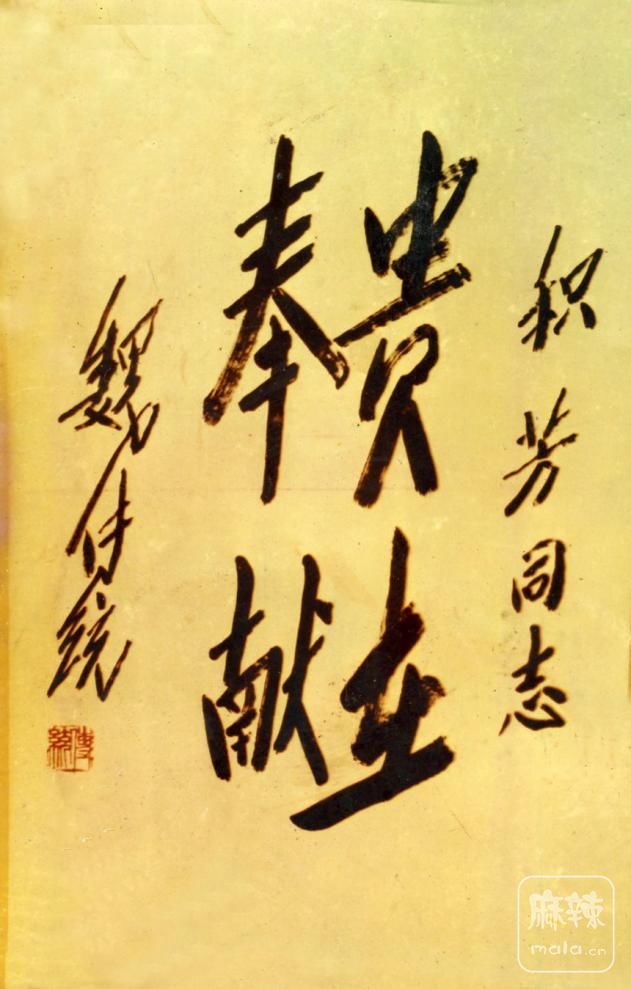 积芳同志
贵在
奉献
魏传统
傳統
麻辣
mala.cn